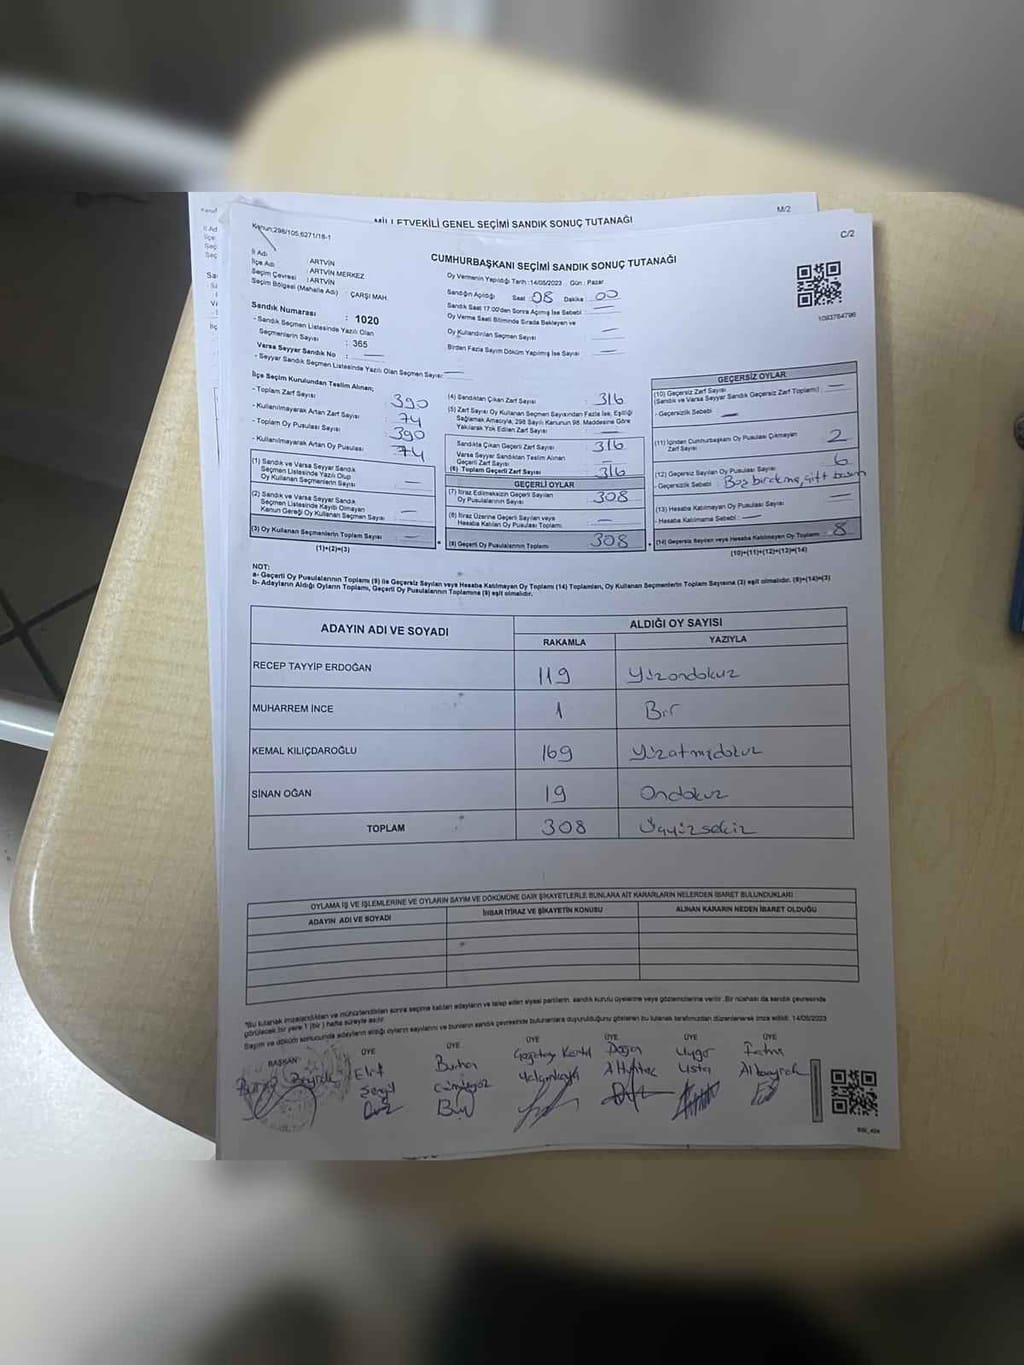 M/2
MİLLETVEKİLİ GENEL SEÇİMİ SANDIK SONUÇ TUTANAĞI
Kanun:298/105,6271/18-1
C/2
CUMHURBAŞKANI SEÇİMİ SANDIK SONUÇ TUTANAĞI
İl Adı : ARTVİN
İlçe Adı : ARTVİN MERKEZ
Seçim Çevresi : ARTVİN
Seçim Bölgesi (Mahalle Adı) : ÇARŞI MAH.
Sandık Numarası : 1020
- Sandık Seçmen Listesinde Yazılı Olan
Seçmenlerin Sayısı : 365
Varsa Seyyar Sandık No :
- Seyyar Sandık Seçmen Listesinde Yazılı Olan Seçmen Sayısı:
Oy Vermenin Yapıldığı Tarih :14/05/2023 Gün : Pazar
Sandığın Açıldığı Saat : 08 Dakika : 00
Sandık Saat 17:00'den Sonra Açılmış İse Sebebi :
Oy Verme Saati Bitiminde Sırada Bekleyen ve
Oy Kullandırılan Seçmen Sayısı :
Birden Fazla Sayım Döküm Yapılmış İse Sayısı :
1093764796
İlçe Seçim Kurulundan Teslim Alınan;
- Toplam Zarf Sayısı : 390
- Kullanılmayarak Artan Zarf Sayısı : 74
- Toplam Oy Pusulası Sayısı : 390
- Kullanılmayarak Artan Oy Pusulası : 74
(1) Sandık ve Varsa Seyyar Sandık
Seçmen Listesinde Yazılı Olup
Oy Kullanan Seçmenlerin Sayısı :
(2) Sandık ve Varsa Seyyar Sandık
Seçmen Listesinde Kaydı Olmayan
Kanun Gereği Oy Kullanan Seçmen Sayısı :
(3) Oy Kullanan Seçmenlerin Toplam Sayısı :
(1)+(2)=(3)
(4) Sandıktan Çıkan Zarf Sayısı : 316
(5) Zarf Sayısı Oy Kullanan Seçmen Sayısından Fazla İse, Eşitliği
Sağlamak Amacıyla, 298 Sayılı Kanunun 98. Maddesine Göre
Yakılarak Yok Edilen Zarf Sayısı :
Sandıkta Çıkan Geçerli Zarf Sayısı : 316
Varsa Seyyar Sandıktan Teslim Alınan
Geçerli Zarf Sayısı :
(6) Toplam Geçerli Zarf Sayısı : 316
GEÇERLİ OYLAR
(7) İtiraz Edilmeksizin Geçerli Sayılan
Oy Pusulalarının Sayısı : 308
(8) İtiraz Üzerine Geçerli Sayılan ve
Hesaba Katılan Oy Pusulası Toplamı :
(9) Geçerli Oy Pusulalarının Toplamı : 308
GEÇERSİZ OYLAR
(10) Geçersiz Zarf Sayısı
(Sandık ve Varsa Seyyar Sandık Geçersiz Zarf Toplamı) :
- Geçersizlik Sebebi :
(11) İçinden Cumhurbaşkanı Oy Pusulası Çıkmayan
Zarf Sayısı : 2
(12) Geçersiz Sayılan Oy Pusulası Sayısı : 6
- Geçersizlik Sebebi : Boş bırakma, çift basım
(13) Hesaba Katılmayan Oy Pusulası Sayısı :
- Hesaba Katılmama Sebebi :
(14) Geçersiz Sayılan veya Hesaba Katılmayan Oy Toplamı : 8
(10)+(11)+(12)+(13)=(14)
NOT:
a- Geçerli Oy Pusulalarının Toplamı (9) ile Geçersiz Sayılan veya Hesaba Katılmayan Oy Toplamı (14) Toplamları, Oy Kullanan Seçmenlerin Toplam Sayısına (3) eşit olmalıdır. (9)+(14)=(3)
b- Adayların Aldığı Oyların Toplamı, Geçerli Oy Pusulalarının Toplamına (9) eşit olmalıdır.
ADAYIN ADI VE SOYADI
ALDIĞI OY SAYISI
RAKAMLA YAZIYLA
RECEP TAYYİP ERDOĞAN 119 Yüzondokuz
MUHARREM İNCE 1 Bir
KEMAL KILIÇDAROĞLU 169 Yüzatmışdokuz
SİNAN OĞAN 19 Ondokuz
TOPLAM 308 Üçyüzsekiz
OYLAMA İŞ VE İŞLEMLERİNE VE OYLARIN SAYIM VE DÖKÜMÜNE DAİR ŞİKAYETLERLE BUNLARA AİT KARARLARIN NELERDEN İBARET BULUNDUKLARI
ADAYIN ADI VE SOYADI İHBAR İTİRAZ VE ŞİKAYETİN KONUSU ALINAN KARARIN NEDEN İBARET OLDUĞU
"Bu tutanak imzalandıktan ve mühürlendikten sonra seçime katılan adayların ve talep eden siyasi partilerin sandık kurulu üyelerine veya gözlemcilerine verilir. Bir nüshası da sandık çevresinde
görülecek bir yere 1 (bir) hafta süreyle asılır.
Sayım ve döküm sonucunda adayların aldığı oyların sayılarını ve bunların sandık çevresinde bulunanlara duyurulduğunu gösteren bu tutanak tarafımızdan düzenlenerek imza edildi. 14/05/2023
BAŞKAN ÜYE ÜYE ÜYE ÜYE ÜYE ÜYE
Elif Burhan Doğan Uygar Fatma
Usta Albayrak